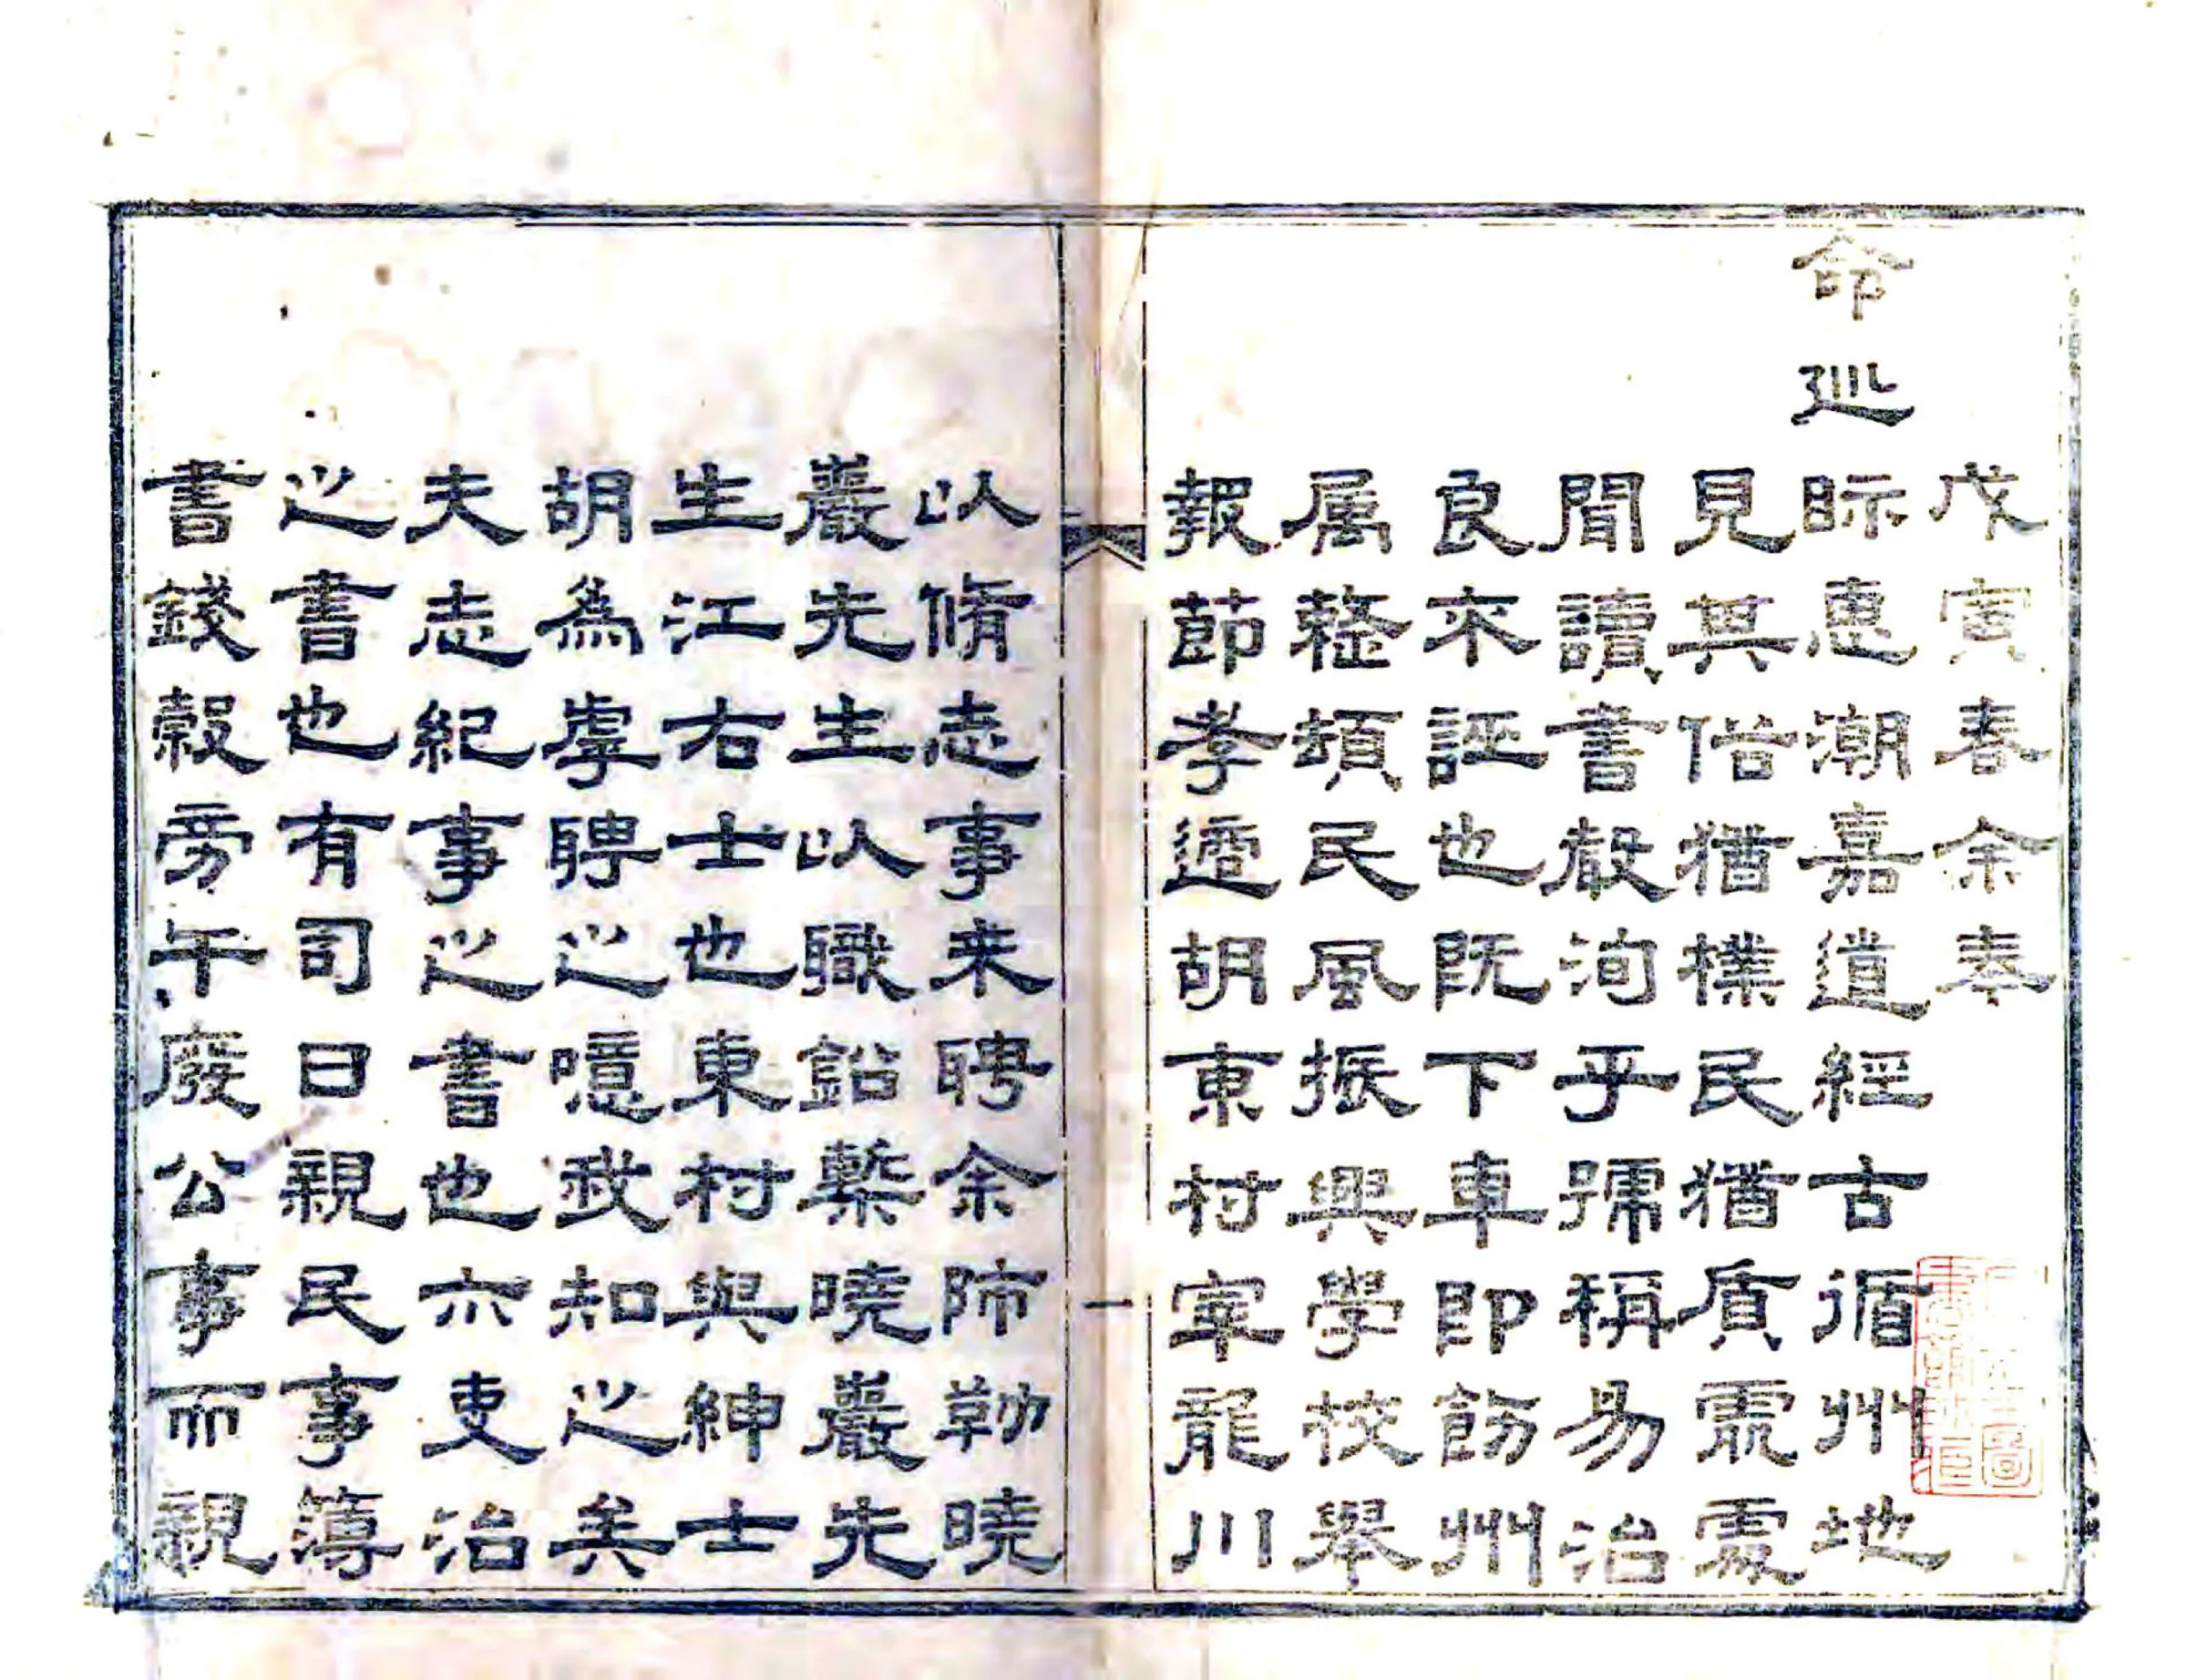 戊寅春余奉
命巡眎惠潮嘉道經古循州地
見其俗猶樸民猶質處處
聞讀書聲洵乎號稱易治
良不誣也既下車即飭州
属整頓民風振興學校舉
報節孝適胡東村宰龍川
一
以脩志事来聘余師勒曉
巖先生以職鉛槧曉巖先
生江右士也東村與紳士
胡為虖聘之噫我知之矣
夫志紀事之書也六吏治
之書也有司曰親民事簿
書錢穀旁午廢公事而親